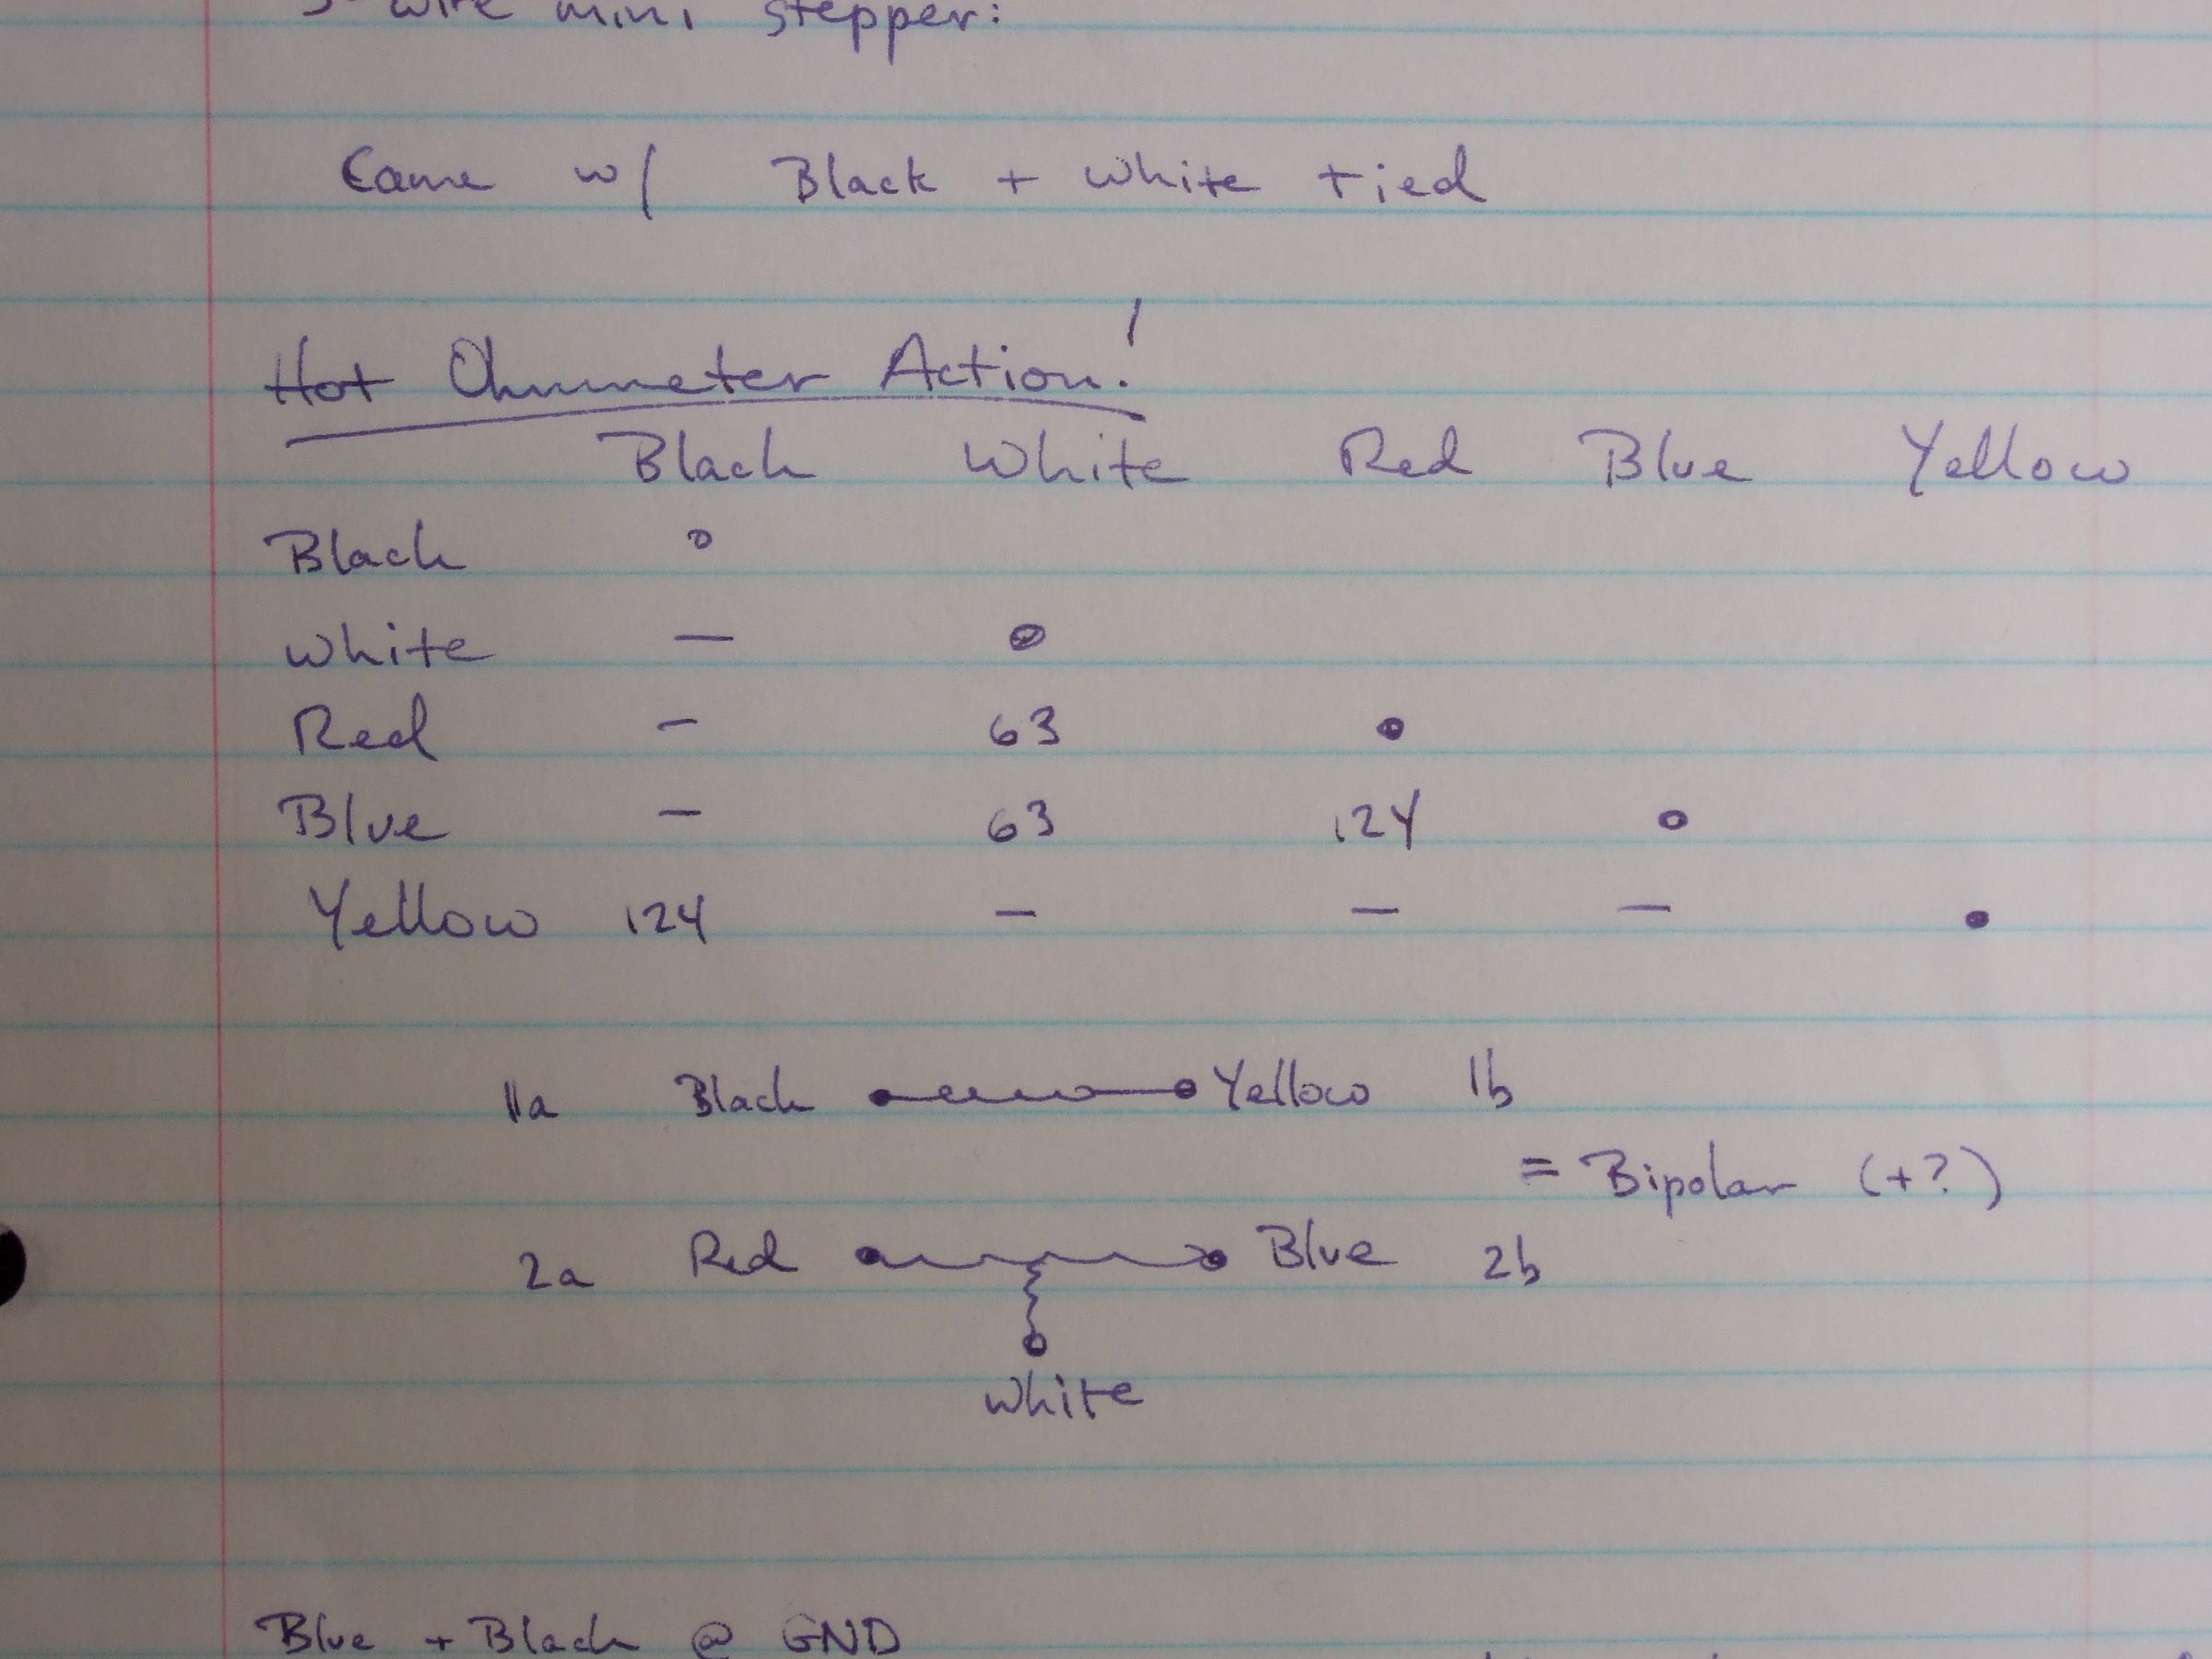 5-wire mini stepper:
Came w/ Black + White tied
Hot Ohmmeter Action!
Black White Red Blue Yellow
Black o
White — •
Red - 63 •
Blue - 63 124 o
Yellow 124 - - - •
1a Black Yellow 1b
= Bipolar (+?)
2a Red Blue 2b
White
Blue + Black @ GND